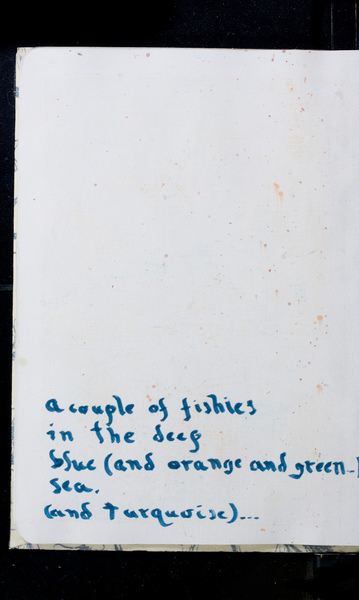 a couple of fishies
in the deep
blue (and orange and green...)
sea.
(and turquoise)...